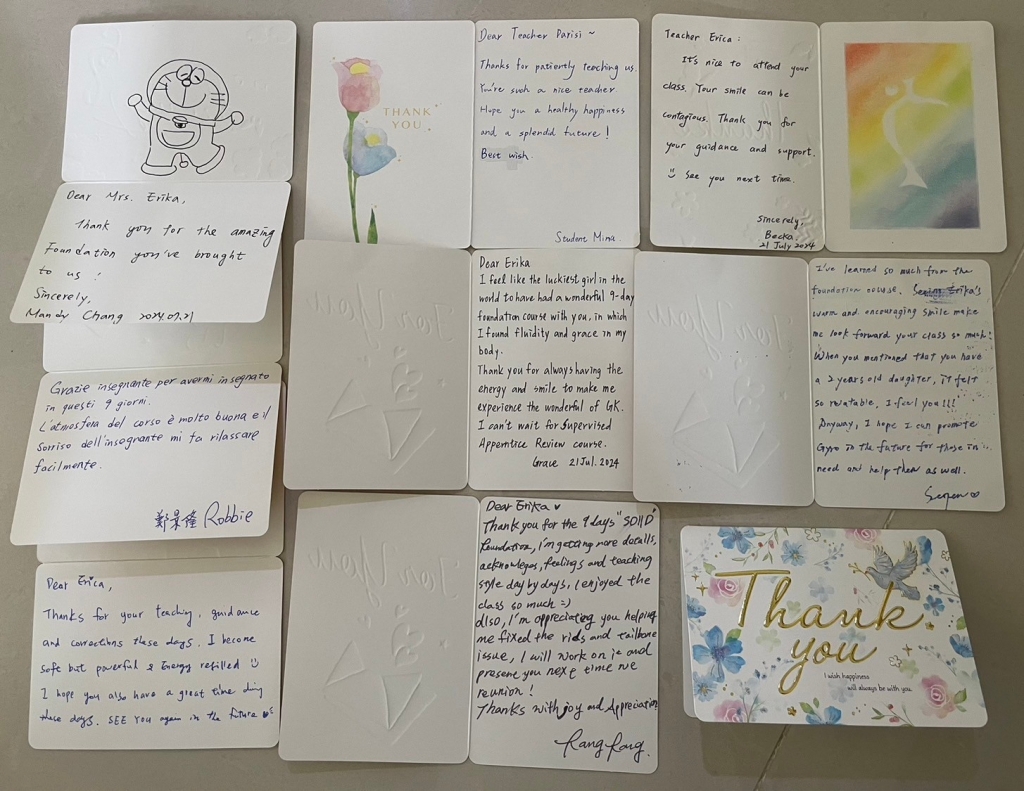 Dear Mrs. Erika,
Thank you for the amazing
Foundation you've brought
to us !
Sincerely,
Mandy Chang 2024.07.21
Grazie insegnante per avermi insegnato
in questi 9 giorni.
L'atmosfera del corso è molto buona e il
sorriso dell'insegnante mi fa rilassare
facilmente.
鄭景隆 Robbie
Dear Erica,
Thanks for your teaching, guidance
and corrections these days. I become
soft but powerful & Energy refilled
I hope you also have a great time
these days. SEE YOU again in the future
THANK
YOU
Dear Teacher Parisi ~
Thanks for patiently teaching us.
You're such a nice teacher.
Hope you a healthy happiness
and a splendid future !
Best wish.
Student Mina.
Teacher Erica :
It's nice to attend your
class. Your smile can be
contagious. Thank you for
your guidance and support.
See you next time.
Sincerely,
Becka
21 July 2024
For You
Dear Erika
I feel like the luckiest girl in the
world to have had a wonderful 9-day
foundation course with you, in which
I found fluidity and grace in my
body.
Thank you for always having the
energy and smile to make me
experience the wonderful of GK.
I can't wait for Supervised
Apprentice Review course.
Grace 21 Jul. 2024
For You
I've learned so much from the
foundation course. Erika's
warm and encouraging smile make
me look forward your class so much!
When you mentioned that you have
a 2 years old daughter, it felt
so relatable, I feel you!!!
Anyway, I hope I can promote
Gyro in the future for those in
need and help them as well.
For You
Dear Erika ♥
Thank you for the 9 days "SOLID"
foundation, I'm getting more details,
acknowleges, feelings and teaching
style day by days, I enjoyed the
class so much =)
Also, I'm appreciating you helping
me fixed the ribs and tailbone
issue, I will work on it and
present you next time we
reunion !
Thanks with joy and Appreciation
Rang Rang.
Thank
you
I wish happiness
will always be with you.